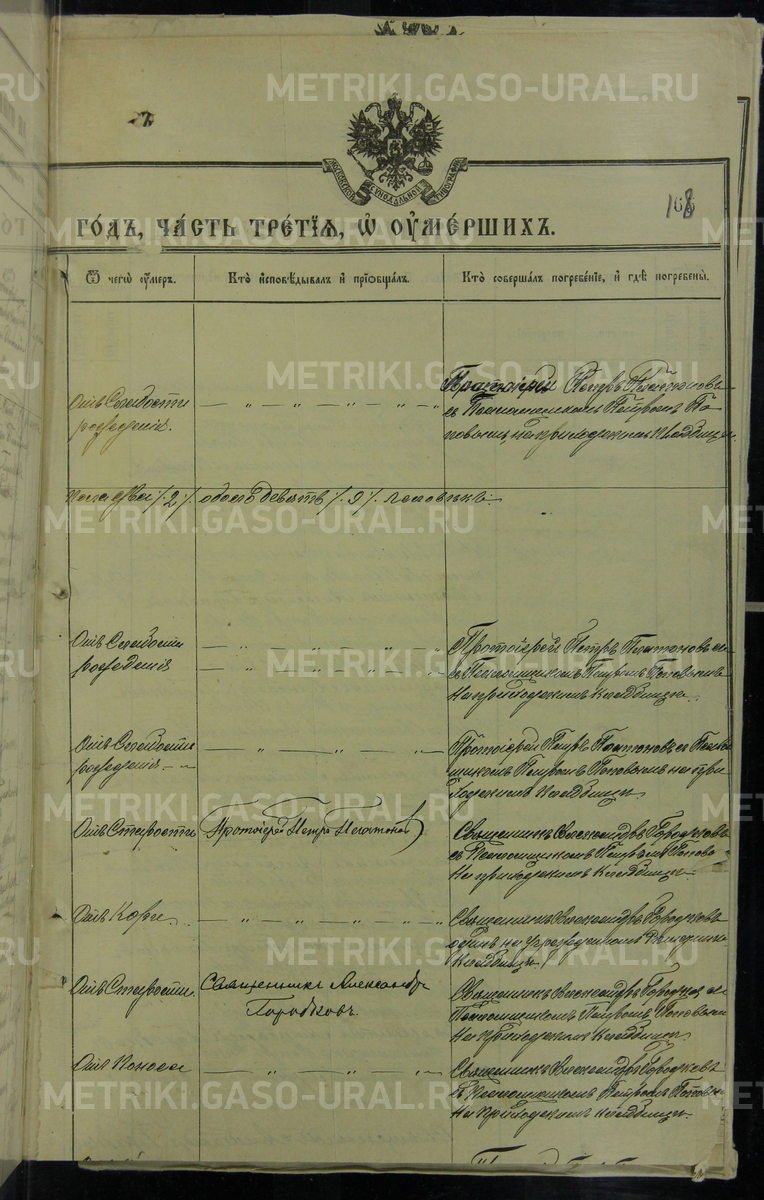 METRIKI.GASO-URAL.RU
МОСКОВСКОЙ СѴНОДАЛЬНОЙ ТИПОГРАФІИ
168
ГО́ДЪ, ЧА́СТЬ ТРЕ́ТІѦ, Ѽ ОУМЕ́РШИХЪ.
Ѿ чегѡ̀ оу҆́меръ.
Кто̀ и҆сповѣ́дывалъ и҆ прїѡбща́лъ.
Кто̀ соверша́лъ погребе́нїе, и҆ гдѣ̀ погребены̀.
Отъ Слабости
рожденія.
Протоіерей Петръ Платоновъ
съ Псаломщикомъ Петромъ По-
повымъ, на приходскомъ кладбищѣ.
два /.2/. обоего девять /.9/. человѣкъ.
METRIKI.GASO-URAL.RU
Отъ Слабости
рожденія
Протоіерей Петръ Платоновъ
съ Псаломщикомъ Петромъ Поповымъ
на приходскомъ кладбищѣ.
Отъ Слабости
рожденія
Протоіерей Петръ Платоновъ съ Псалом-
щикомъ Петромъ Поповымъ на при-
ходскомъ кладбищѣ.
METRIKI.GASO-URAL.RU
Отъ Старости
Протоіерей Петръ Платоновъ
Священникъ Александръ Городковъ
съ Псаломщикомъ Петромъ Попов.
на приходскомъ кладбищѣ.
Отъ Кори.
Священникъ Александръ Городковъ
одинъ на
кладбищѣ.
Отъ Старости.
Священникъ Александръ
Городковъ.
Священникъ Александръ Городковъ съ
Псаломщикомъ Петромъ Поповымъ
на приходскомъ кладбищѣ.
Отъ Поноса
Священникъ Александръ Городковъ
съ Псаломщикомъ Петромъ Поповымъ
на приходскомъ кладбищѣ.
METRIKI.GASO-URAL.RU